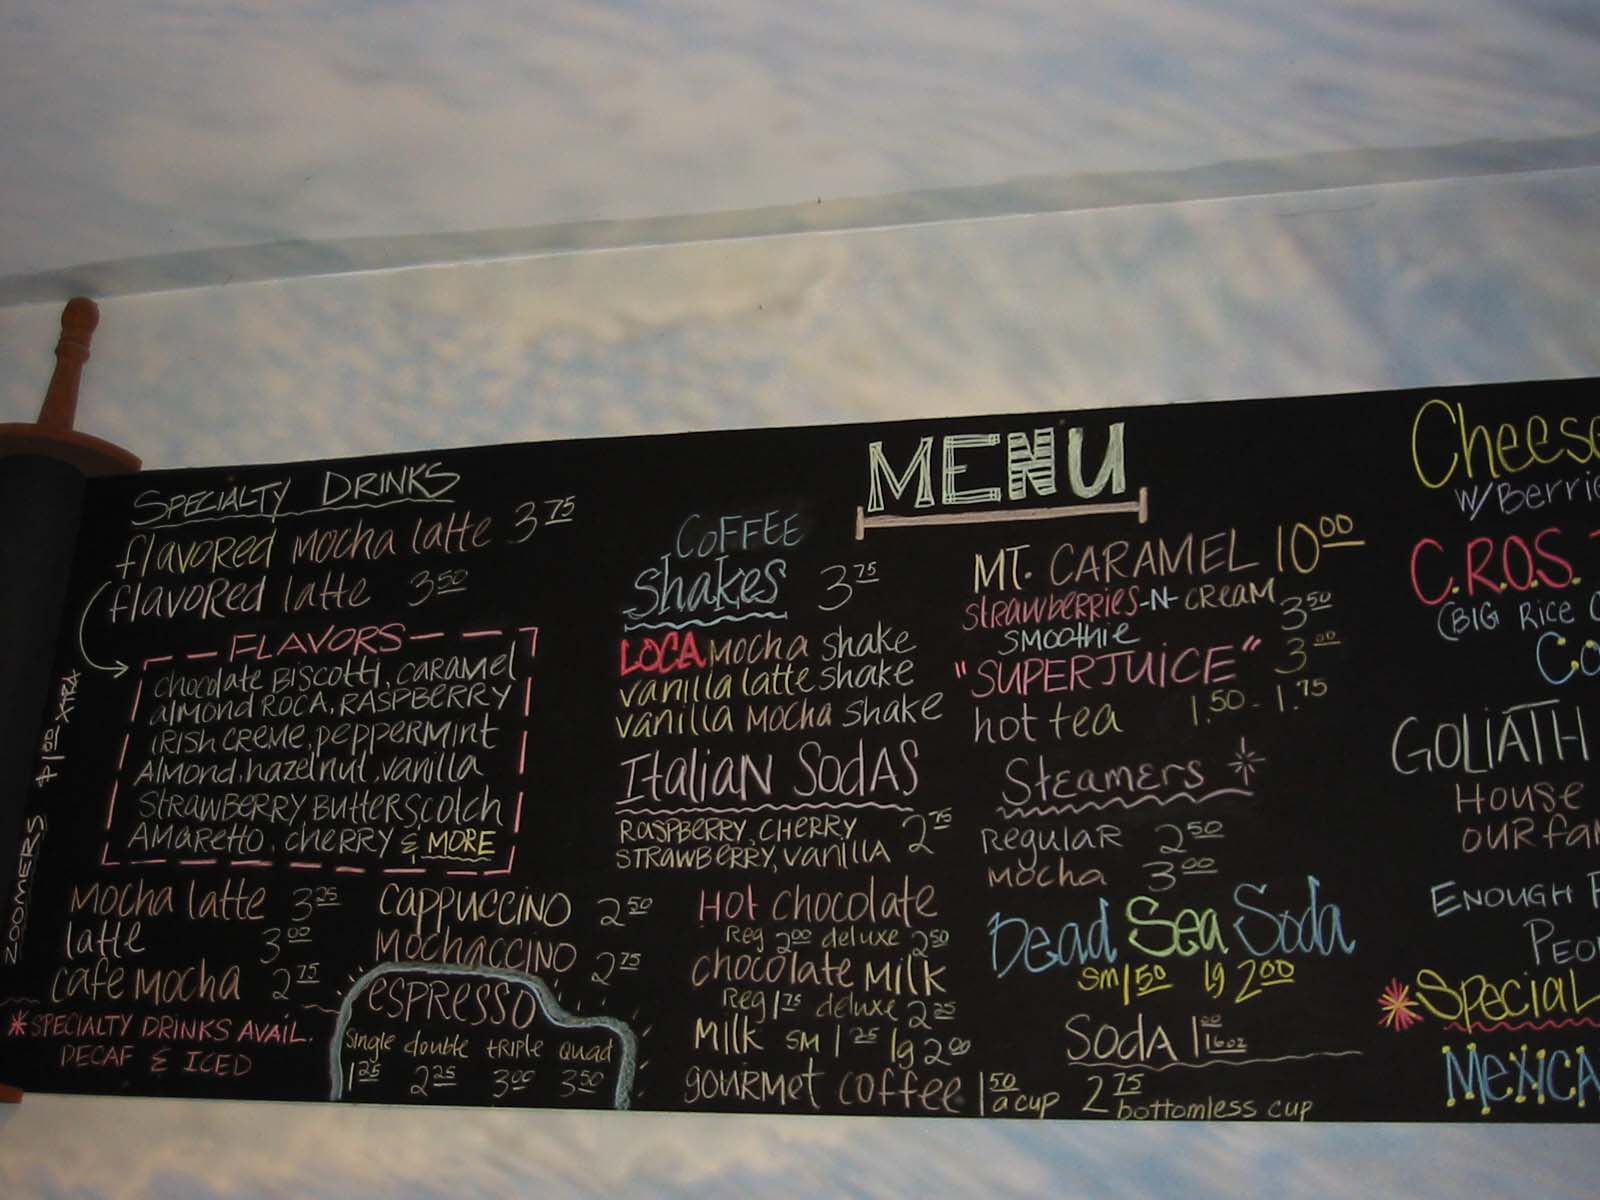 MENU
SPECIALTY DRINKS
flavored mocha latte 3 75
flavored latte 3 50
FLAVORS
chocolate BISCOTTI, CARAMEL
almond ROCA, RASPBERRY
IRISH CREME, PEPPERMINT
Almond, hazelnut, vanilla
STRAWBERRY BUTTERSCOTCH
AMARETTO, CHERRY & MORE
ZOOMERS $1.00 XTRA
Mocha latte 3 25
latte 3 00
cafe mocha 2 75
*SPECIALTY DRINKS AVAIL.
DECAF & ICED
CAPPUCCINO 2 50
MOCHACCINO 2 75
ESPRESSO
single double triple quad
1 25 2 25 3 00 3 50
COFFEE
Shakes 3 75
LOCA Mocha shake
vanilla latte shake
vanilla Mocha shake
Italian Sodas
RASPBERRY, CHERRY 2 75
STRAWBERRY, vanilla
Hot chocolate
Reg 2 00 deluxe 2 50
chocolate Milk
Reg 1 75 deluxe 2 25
Milk SM 1 25 lg 2 00
gourmet coffee 1 50 a cup 2 75 bottomless cup
MT. CARAMEL 10 00
Strawberries-N-CREAM 3 50
SMOOTHIE
"SUPERJUICE" 3 00
hot tea 1.50 - 1.75
Steamers *
Regular 2 50
Mocha 3 00
Dead Sea Soda
sm 1 50 lg 2 00
SODA 1 00 16oz
Cheese
W/Berrie
C.R.O.S.
(BIG RICE
Co
GOLIATH
HOUSE
OUR fa
ENOUGH
PEO
*Special
MEXICA